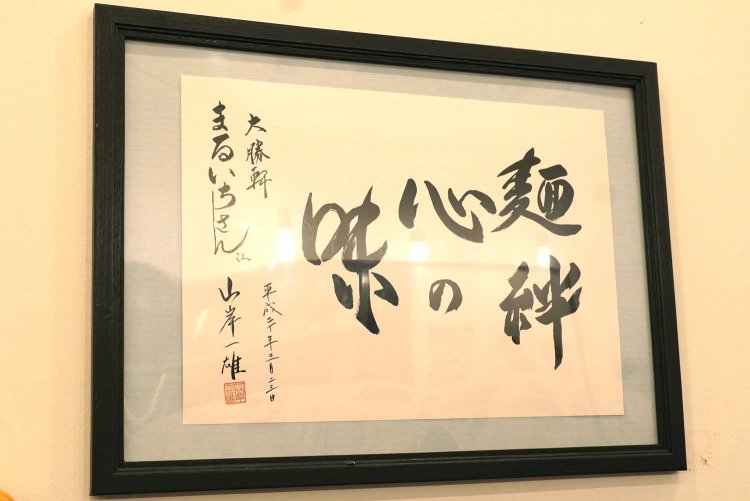 麺絆
心の
味
平成二十年三月二三日
大勝軒
まるいちさん江
山岸一雄